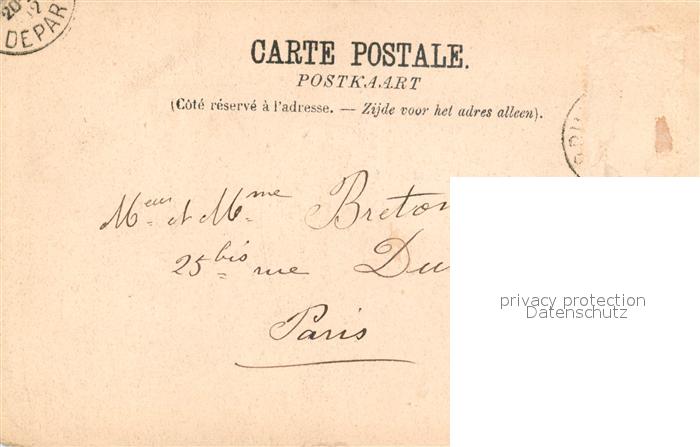 20 12
DEPAR
CARTE POSTALE.
POSTKAART
(Côté réservé à l'adresse. — Zijde voor het adres alleen).
Meur et Mme Breton
25 bis rue Du
Paris
privacy protection
Datenschutz